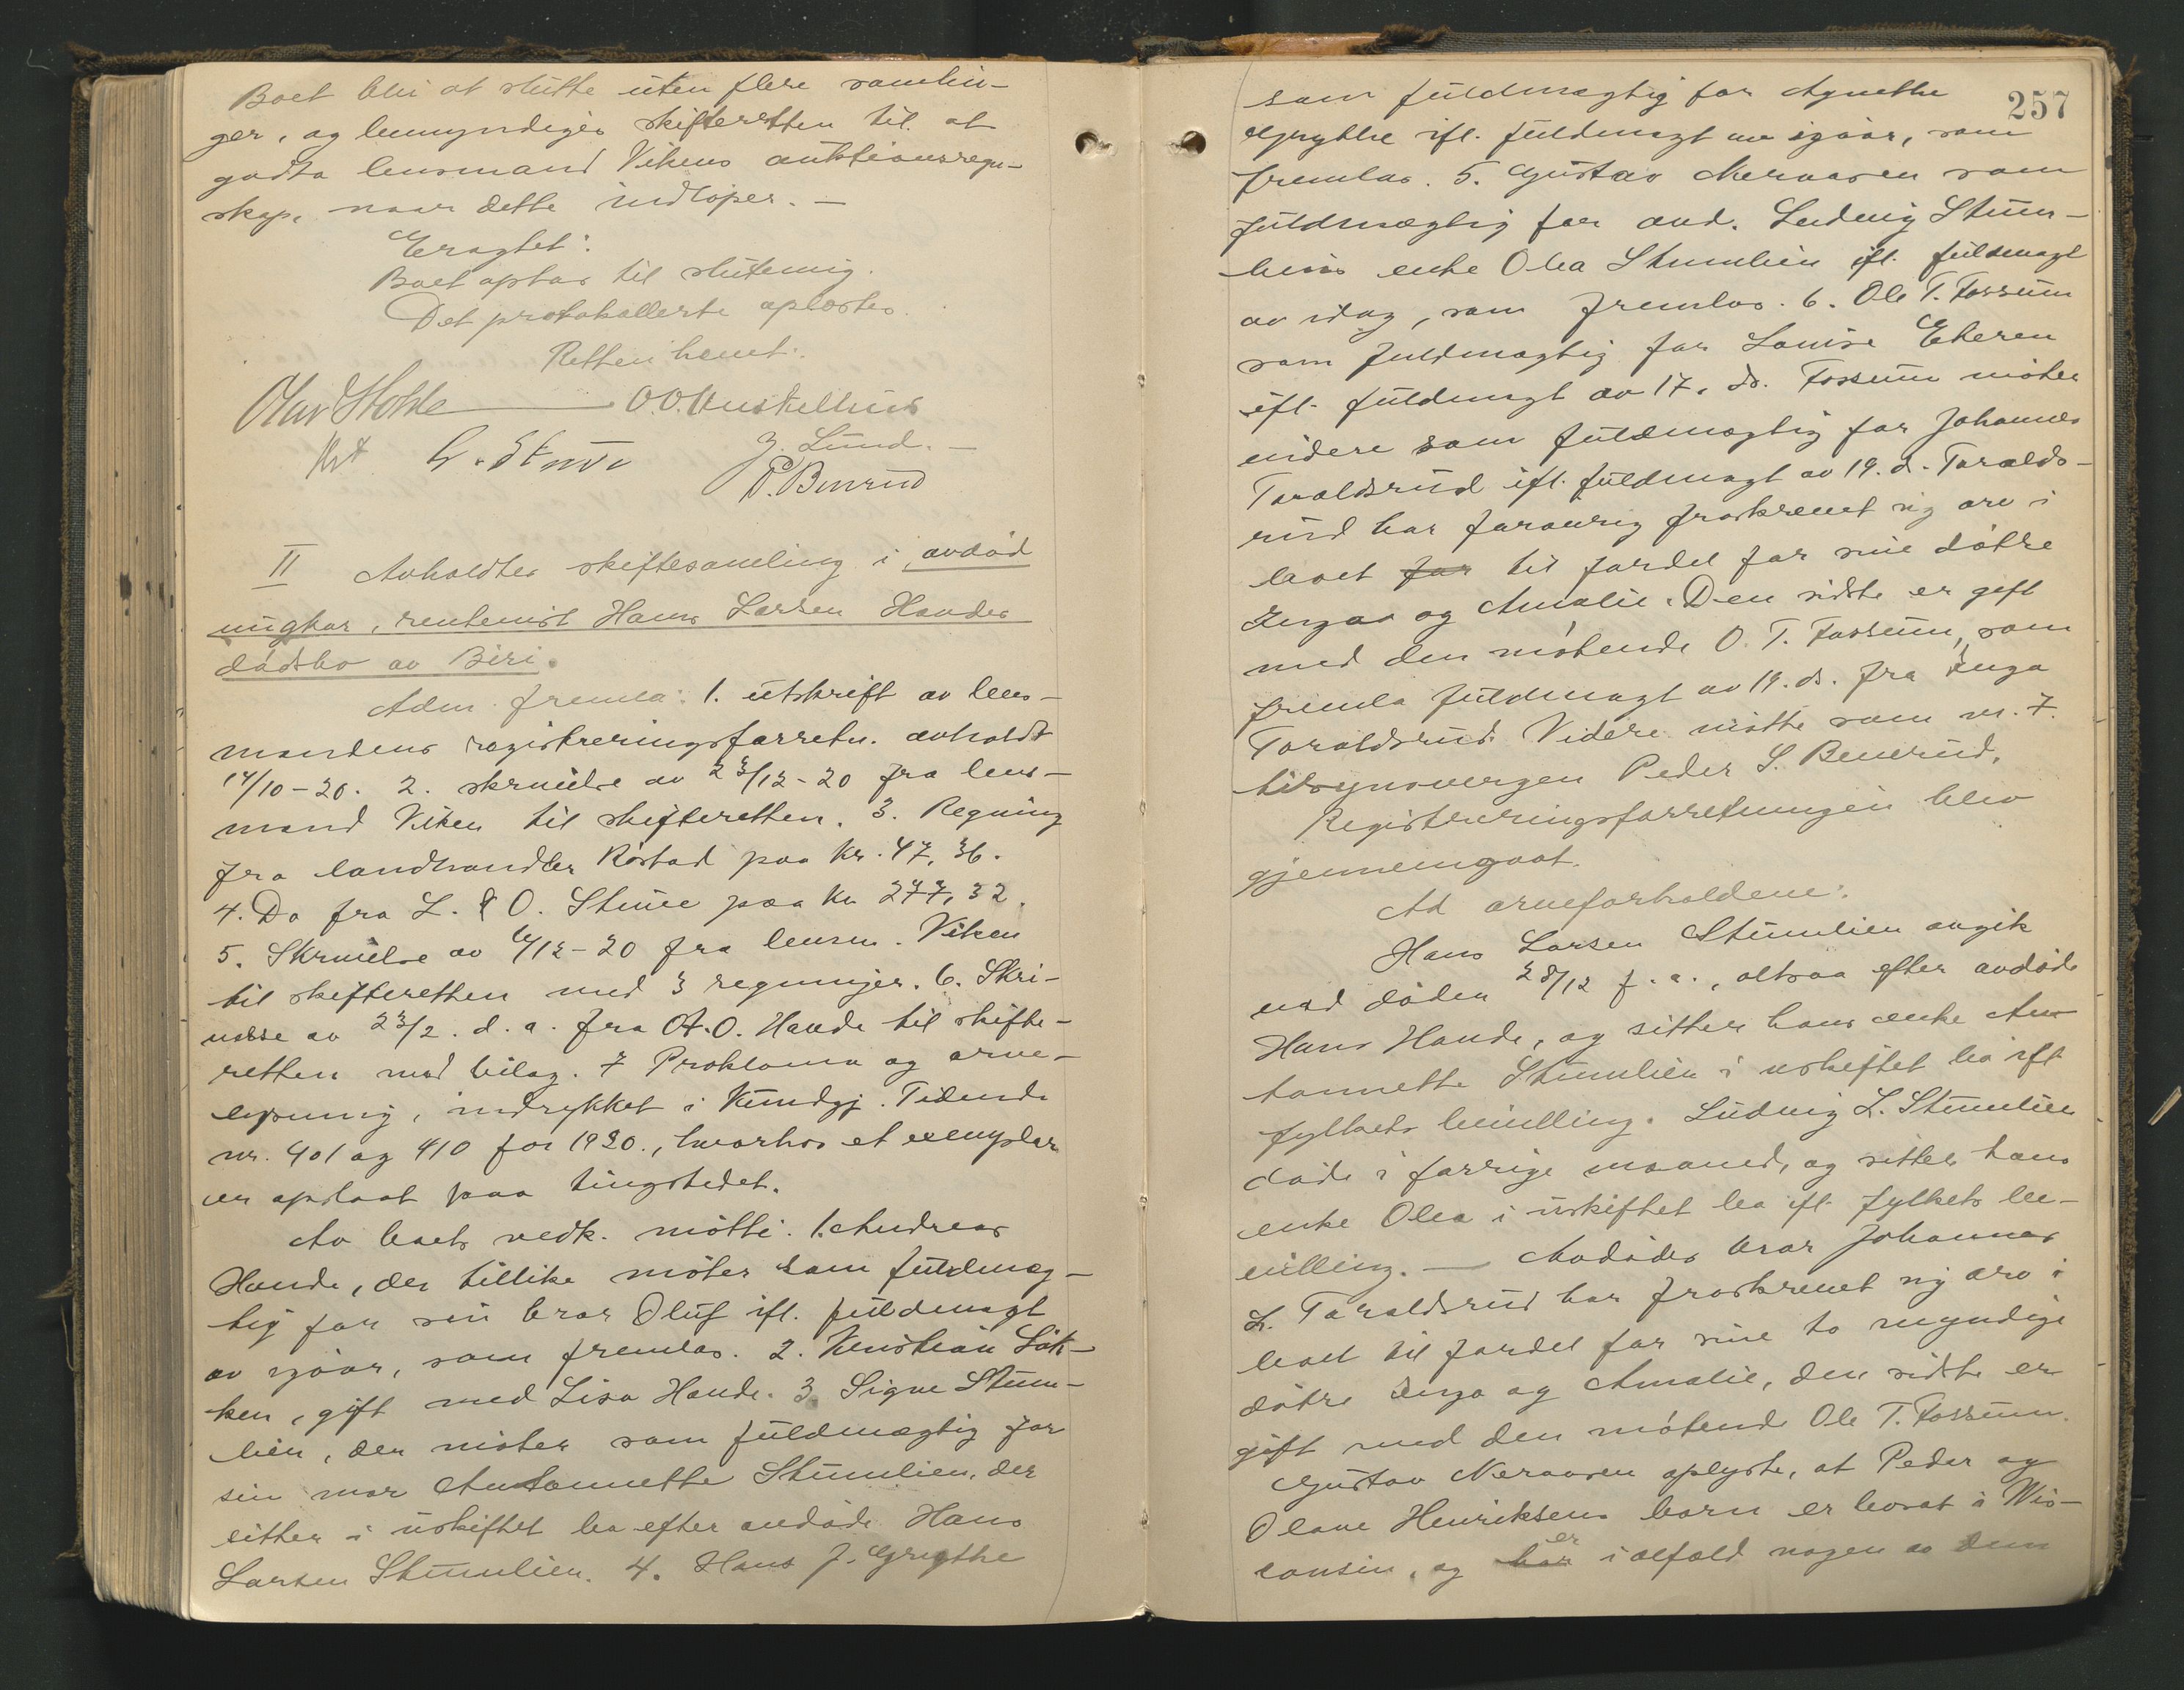 Boet blir at slutte uten flere samlin-
ger, og bemyndiges skifteretten til at
godta lensmand Vikens auktionsregn-
skap, naar dette indløper. —
Eragtet:
Boet optas til slutning.
Det protokollerte oplæstes.
Retten hevet.
Olav Stokke O.O. Onskelhus
J. Lund. —
P. Benrud
II Avholdtes skiftesamling i avdød
ungkar, rentenist Hans Larsen Haudes
dødsbo av Biri.
Adm. fremla: 1. utskrift av lens-
mandens registreringsforretn. avholdt
14/10-20. 2. skrivelse av 23/12-20 fra lens-
mand Viken til skifteretten. 3. Regning
fra landhandler Røstad paa kr. 47,36.
4. Do fra L. & O. Stuve paa kr 277,32.
5. Skrivelse av /12-20 fra lensm. Viken
til skifteretten med 3 regninger. 6. Skri-
velse av 23/2. d.a. fra A.O. Haude til skifte-
retten med bilag. 7 Proklama og arve-
lysning, indrykket i Kundgj. Tidende
nr. 401 og 410 for 1920., hvorhos et exemplar
er opslaat paa tingstedet.
Av boets vedk. møtte: 1. Andreas
Haude, der tillike møter som fuldmæg-
tig for sin bror Oluf ifl. fuldmagt
av igaar, som fremlas. 2. Kristian Løk-
ken, gift med Lisa Haude. 3. Signe Stum-
lien, der møter som fuldmægtig for
sin mor Antonnette Stumlien, der
sitter i uskiftet bo efter avdøde Hans
Larsen Stumlien. 4. Hans J. Grythe
257
som fuldmægtig for Agnethe
Grythe ifl. fuldmagt av igaar, som
fremlas. 5. Gustav Neraasen som
fuldmægtig for avd. Ludvig Stum-
liens enke Olea Stumlien ifl. fuldmagt
av idag, som fremlas. 6. Ole T. Fossum
som fuldmægtig for Louise Ekeren
ifl. fuldmagt av 17. ds. Fossum møter
videre som fuldmægtig for Johannes
Taraldsrud ifl. fuldmagt av 19. d. Taralds-
rud har forøvrig fraskrevet sig arv i
boet for til fordel for sine døtre
Inga og Amalie. Den sidste er gift
med den møtende O. T. Fossum, som
fremla fuldmagt av 19. ds. fra Inga
Taraldsrud. Videre møtte som nr. 7.
tilsynsvergen Peder L. Benrud.
Registreringsforretningen blev
gjennemgaat.
Ad arveforholdene:
Hans Larsen Stumlien avgik
ved døden 28/12 f.a., altsaa efter avdøde
Hans Haude, og sitter hans enke An-
tonnette Stumlien i uskiftet bo ifl
fylkets bevilling. Ludvig L. Stumlien
døde i forrige maaned, og sitter hans
enke Olea i uskiftet bo ifl. fylkets be-
villing. — Avdødes bror Johannes
L. Taraldsrud har fraskrevet sig arv i
boet til fordel for sine to myndige
døtre Inga og Amalie, den sidste er
gift med den møtende Ole T. Fossum.
Gustav Neraasen oplyste, at Peder og
Olave Henriksens barn er bosat i Wis-
consin, og har er ialfald nogen av dem